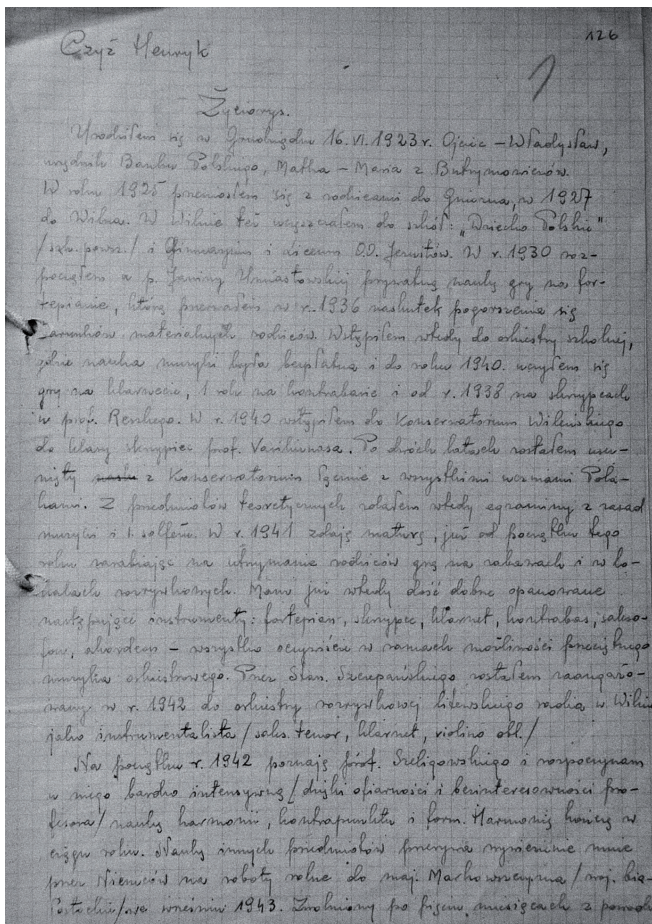 126
Czyż Henryk
1
Życiorys.
Urodziłem się w Grudziądzu 16.VI.1923 r. Ojciec – Władysław,
urzędnik Banku Polskiego, Matka – Maria z Butrymowiczów.
W roku 1925 przeniosłem się z rodzicami do Gniezna, w 1927
do Wilna. W Wilnie też uczęszczałem do szkół: „Dziecko Polskie"
/szk. powsz./ i Gimnazjum i Liceum O.O. Jezuitów. W r. 1930 roz-
począłem u p. Janiny Umiastowskiej prywatną naukę gry na for-
tepianie, którą przerwałem w r. 1936 naskutek pogorszenia się
warunków materialnych rodziców. Wstąpiłem wtedy do orkiestry szkolnej,
gdzie nauka muzyki była bezpłatna i do roku 1940. uczyłem się
gry na klarnecie, 1 rok na kontrabasie i od r. 1938 na skrzypcach
u prof. Renskego. W r. 1940 wstąpiłem do Konserwatorium Wileńskiego
do klasy skrzypiec prof. Vasiliunasa. Po dwóch latach zostałem usu-
nięty z Konserwatorium łącznie z wszystkimi uczniami Pola-
kami. Z przedmiotów teoretycznych zdałem wtedy egzaminy z zasad
muzyki i I. solfeżu. W r. 1941 zdaję maturę, już od początku tego
roku zarabiając na utrzymanie rodziców grą na zabawach i w lo-
kalach rozrywkowych. Mam już wtedy dość dobrze opanowane
następujące instrumenty: fortepian, skrzypce, klarnet, kontrabas, sakso-
fon, akordeon – wszystko oczywiście w ramach możliwości przeciętnego
muzyka orkiestrowego. Przez Stan. Szczepańskiego zostałem zaangażo-
wany w r. 1942 do orkiestry rozrywkowej litewskiego radia w Wilnie
jako instrumentalista /saks. tenor, klarnet, violino obl./
Na początku r. 1942 poznaję prof. Szeligowskiego i rozpoczynam
u niego bardzo intensywną /dzięki ofiarności i bezinteresowności pro-
fesora/ naukę harmonii, kontrapunktu i form. Harmonię kończę w
ciągu roku. Naukę innych przedmiotów przerywa wywiezienie mnie
przez Niemców na roboty rolne do maj. Markowszczyzna /woj. bia-
łostockie/ we wrześniu 1943. Zwolniony po pięciu miesiącach z powodu